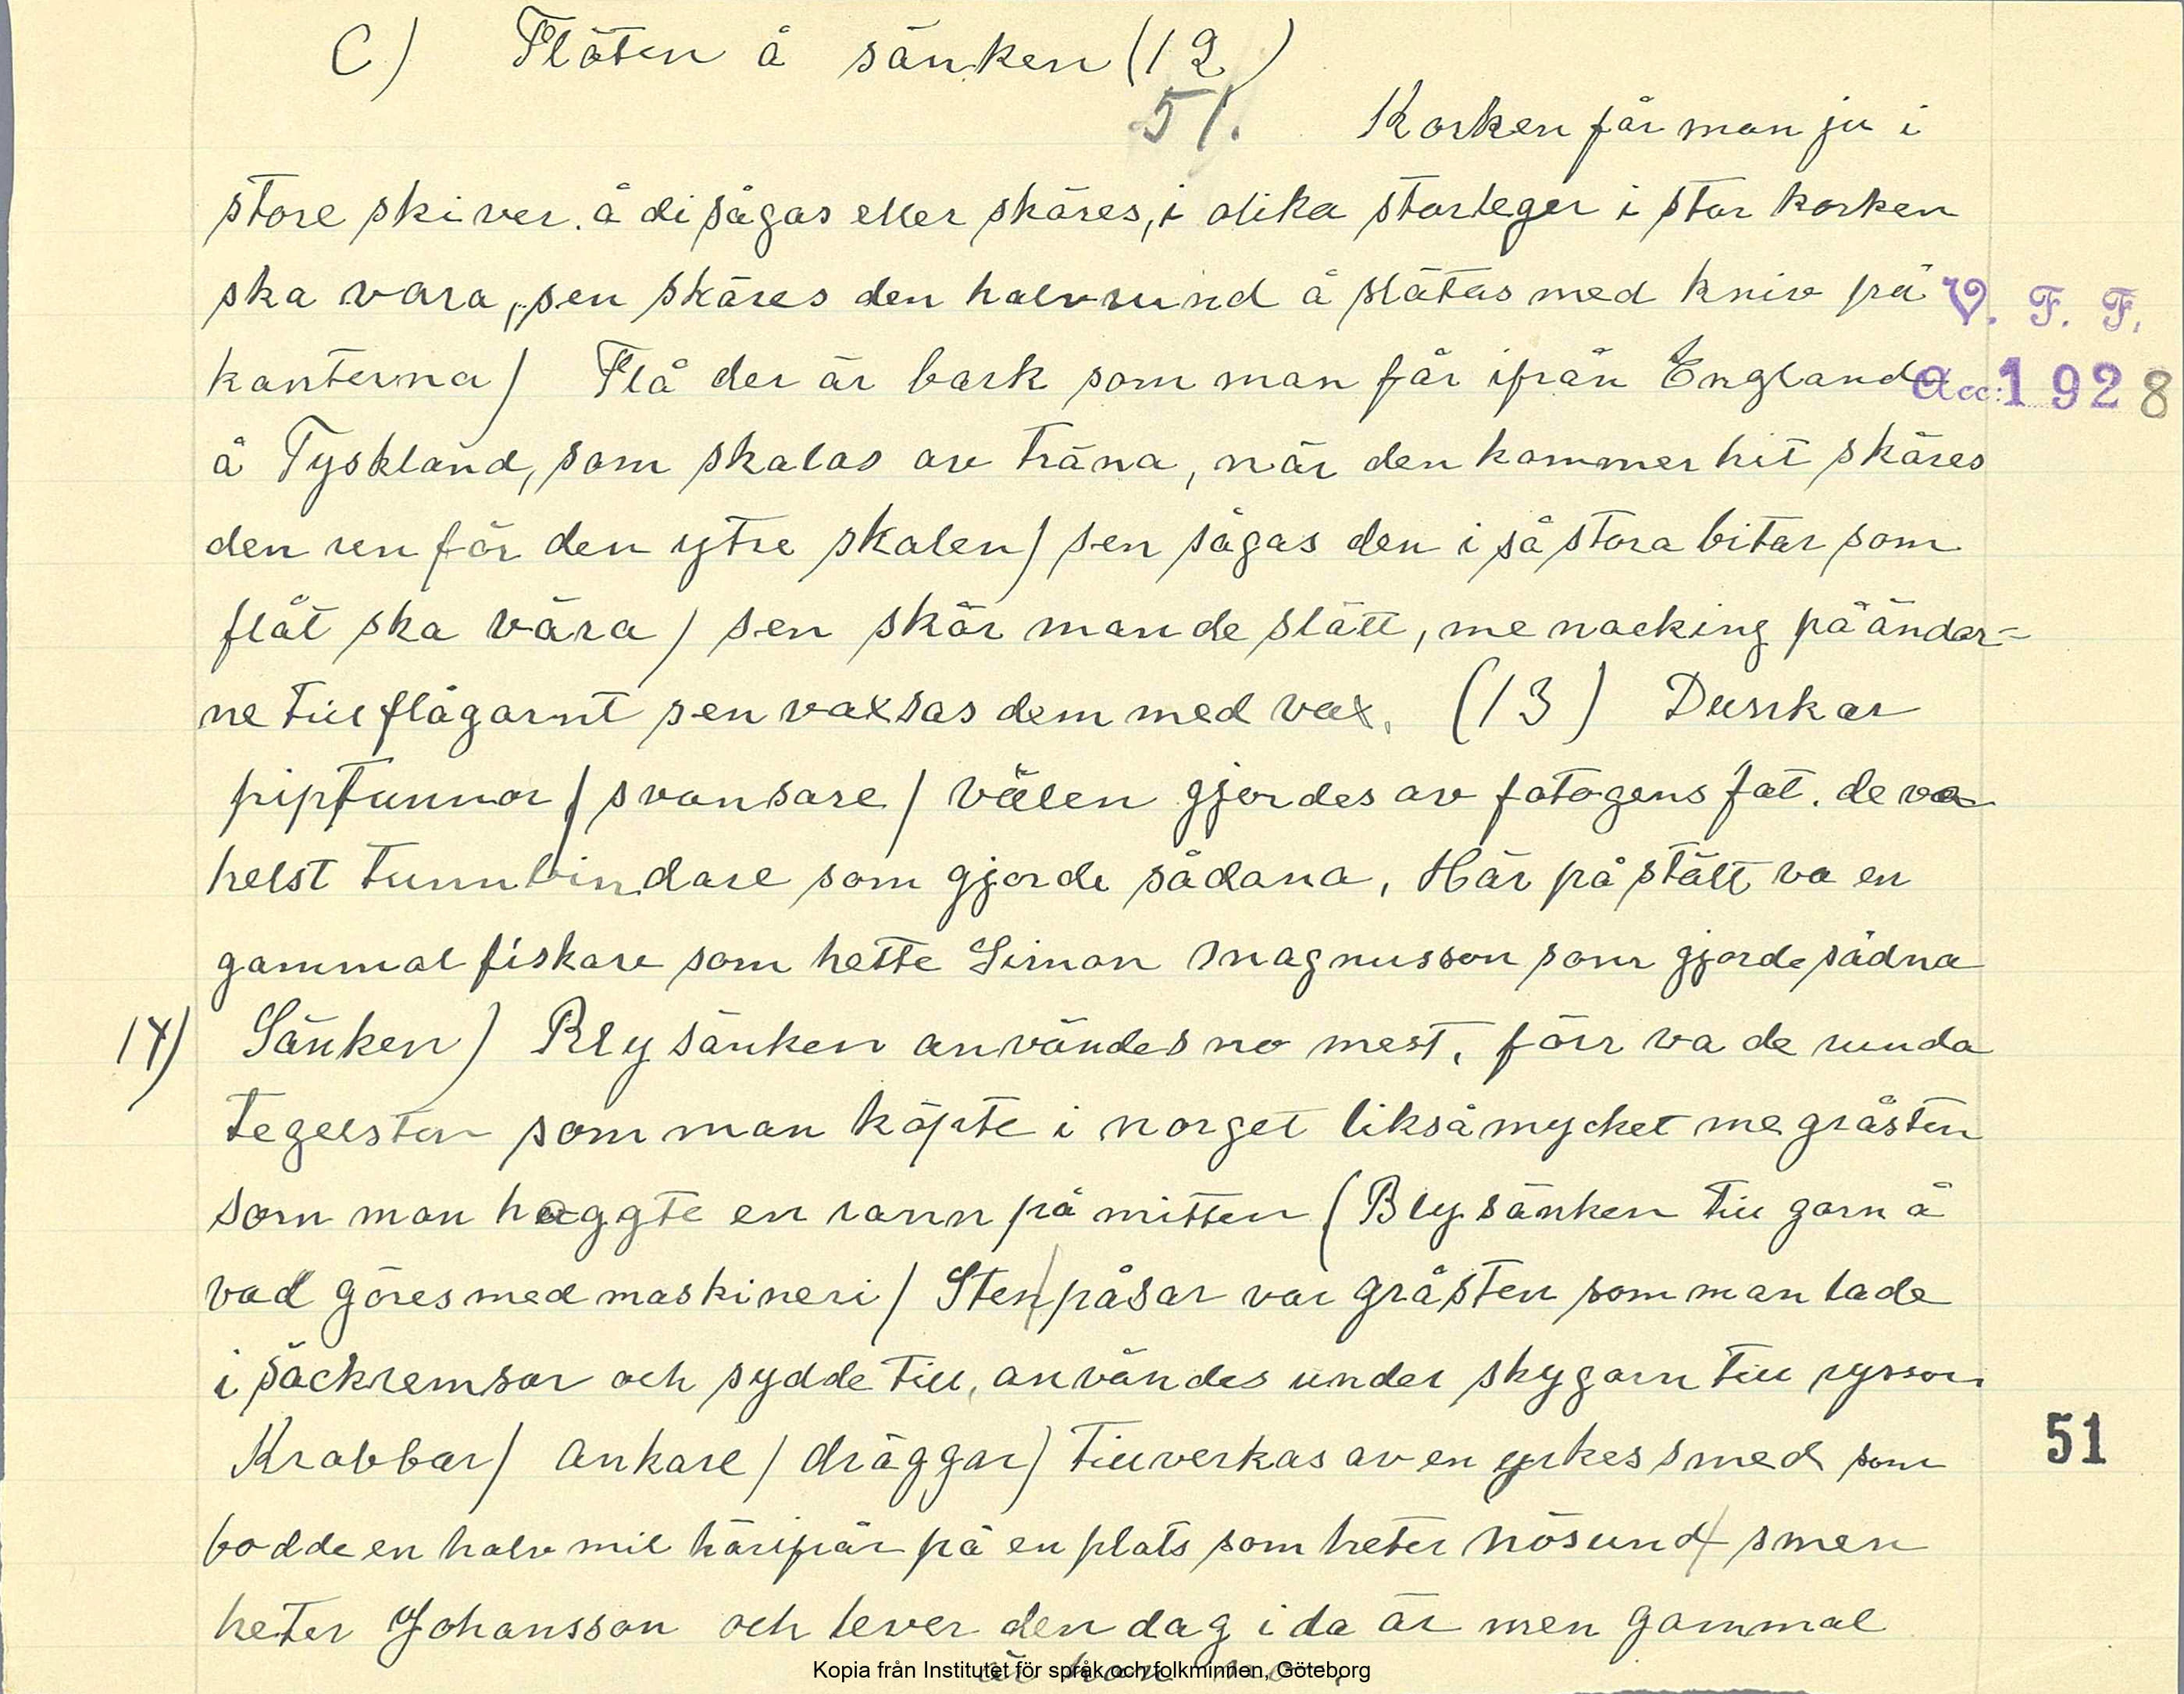 C) Flöten å sänken (12)
51. Korken får man ju i
store skiver. å di sågas eller skäres, i olika storleger i stor korken
ska vara, sen skäres den halvrund å slätas med kniv på
V. F. F.
kanterna) Flå der är bark som man får ifrån England
Acc: 1928
å Tyskland, som skalas av träna, när den kommer hit skäres
den ren för den ytre skalen) sen sågas den i så stora bitar som
flåt ska vära / sen skär man de slätt, me nacking på ändar=
ne till flågarnt sen vaxsas dem med vax. (13) Dunkar
piptunnor / svansare / välen gjordes av fotogens fat. de va
helst tunnbindare som gjorde sådana, Här på stält va en
gammal fiskare som hette Simon Magnusson som gjorde sådna
14) Sänken) Bly sänken användes no mest, förr va de runda
tegelsten som man köpte i norget liksåmycket me gråsten
som man haggte en rann på mitten (Bly sänken till garn å
vad göres med maskineri / Sten/påsar var gråsten som man lade
i säckremsor och sydde till, användes under skygarn till ryssor
Krabbar) ankare / dräggar) tillverkas av en yrkes smed som
51
bodde en halv mil härifrån på en plats som heter Nösund smen
heter Johansson och lever den dag i da är men gammal
är han no
Kopia från Institutet för språk och folkminnen, Göteborg